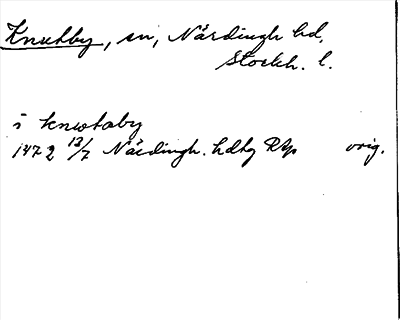 Knutby, sn, Närdingh hd,
Stockh. l.
i knwtaby
1472 13/7 Närdingh. hdtg RAp orig.